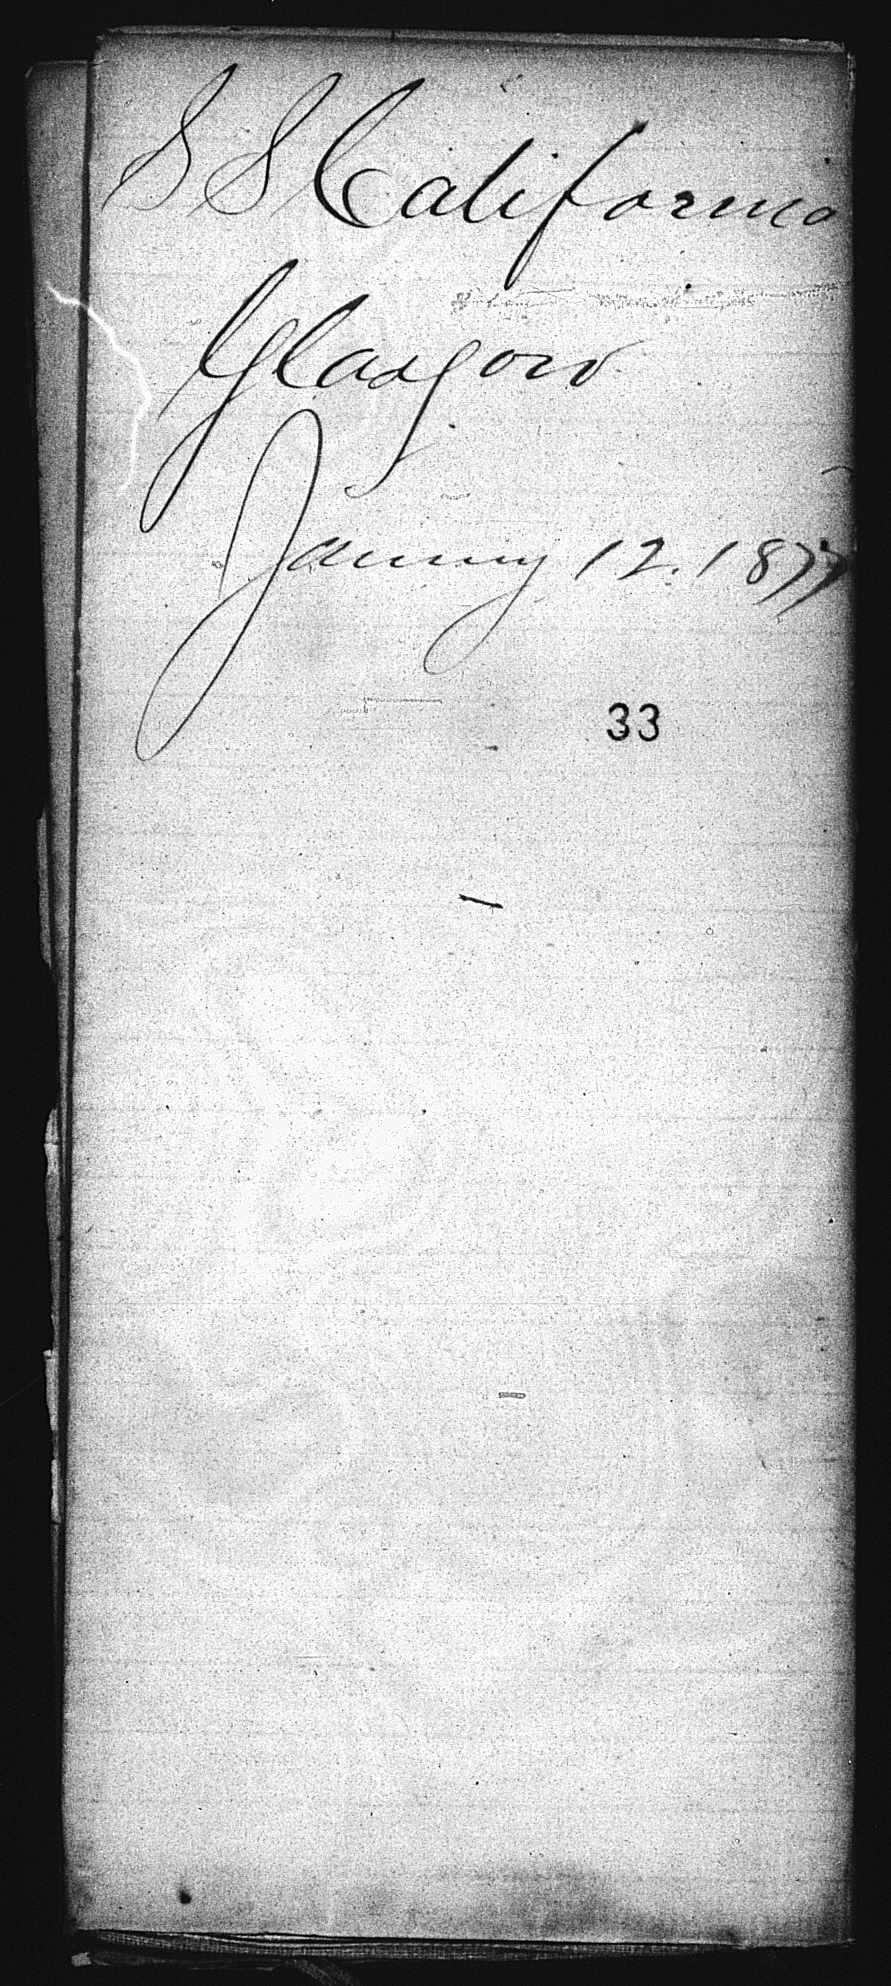 SS California
Glasgow
January 12. 1877
33